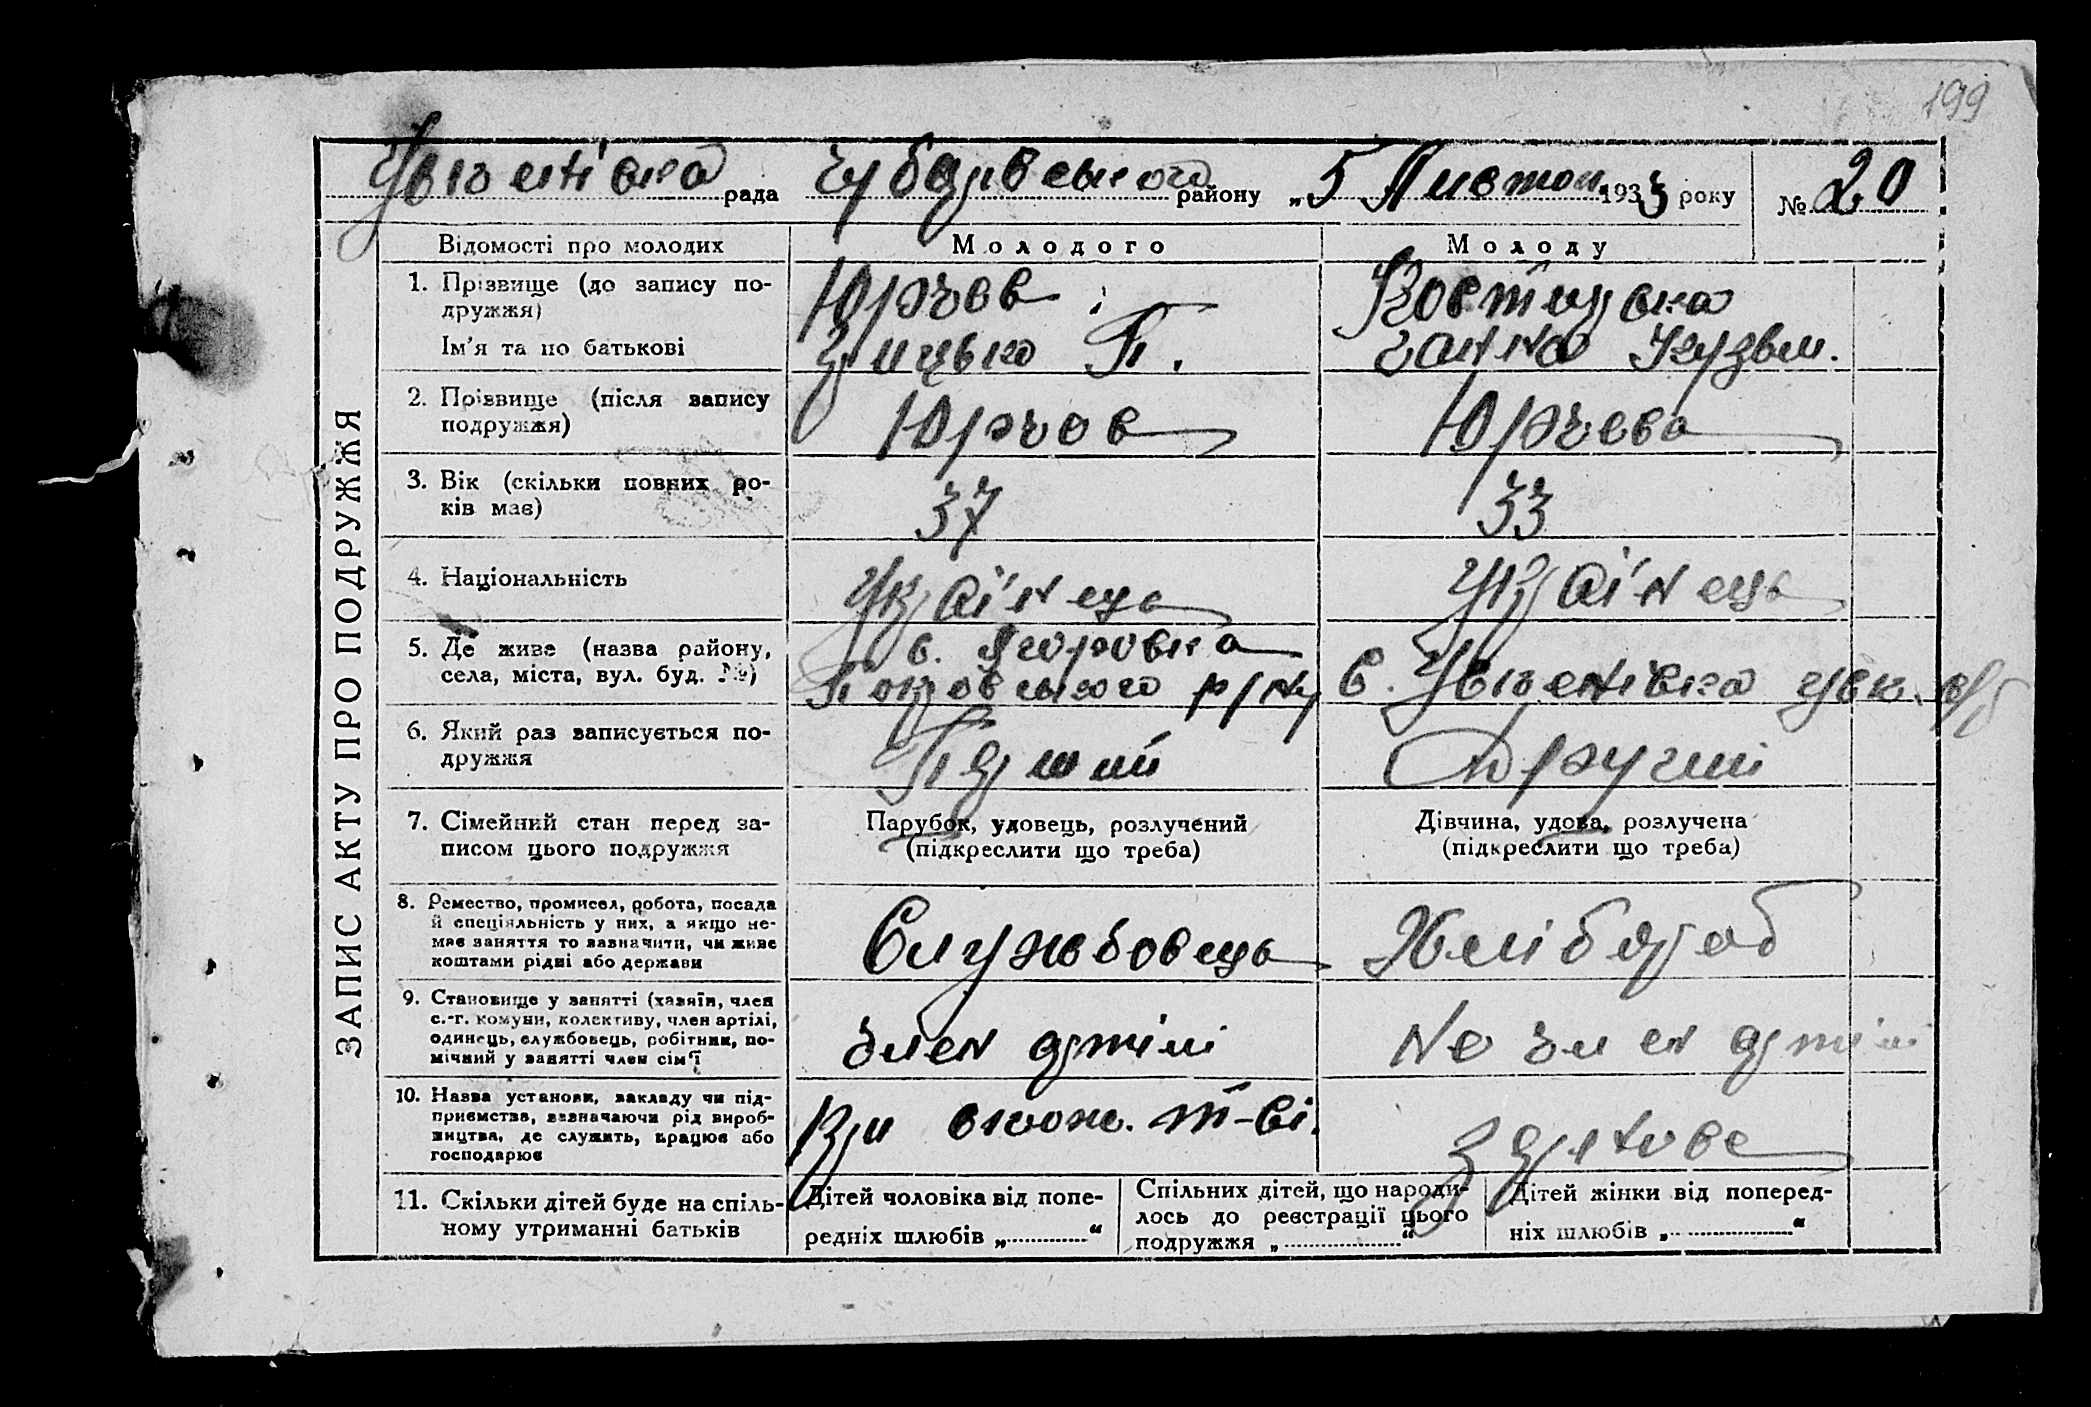 199
рада Чубарівського району „5 Листоп. 1933 року № 20
ЗАПИС АКТУ ПРО ПОДРУЖЖЯ
Відомості про молодих Молодого Молоду
1. Прізвище (до запису по-
дружжя)
Юрчов
Ім'я та по батькові
Грицько П.
Ганна Кузьм.
2. Прізвище (після запису
подружжя)
Юрчов Юрчева
3. Вік (скільки повних ро-
ків має)
37 33
4. Національність
Українець Українець
5. Де живе (назва району,
села, міста, вул. буд. №)
с. Ягоровка
Покровського р-ну
с.
6. Який раз записується по-
дружжя
Перший Другий
7. Сімейний стан перед за-
писом цього подружжя
Парубок, удовець, розлучений
(підкреслити що треба)
Дівчина, удова, розлучена
(підкреслити що треба)
8. Ремество, промисел, робота, посада
й спеціяльність у них, а якщо не-
має заняття то зазначити, чи живе
коштами рідні або держави
Службовець Хлібороб
9. Становище у занятті (хазяїн, член
с.-г. комуни, колективу, член артілі,
одинець, службовець, робітник, по-
мічний у занятті член сім'ї
Член артілі Не член артілі
10. Назва установи, закладу чи під-
приємства, зазначаючи рід вироб-
ництва, де служить, працює або
господарює
т-ві.
Зернове
11. Скільки дітей буде на спіль-
ному утриманні батьків
Дітей чоловіка від попе-
редніх шлюбів „ “
Спільних дітей, що народи-
лось до реєстрації цього
подружжя „ “
Дітей жінки від поперед-
ніх шлюбів „ “